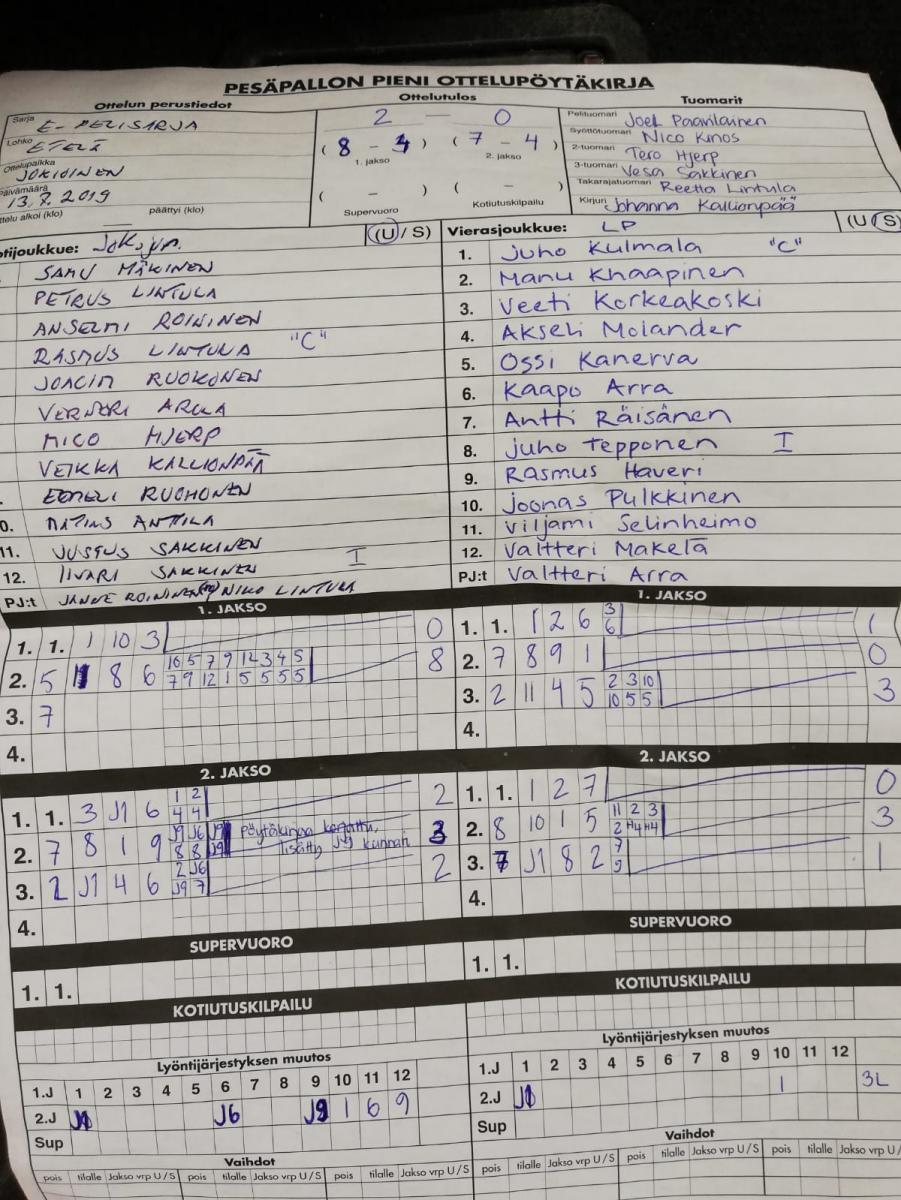 PESÄPALLON PIENI OTTELUPÖYTÄKIRJA
Ottelun perustiedot
Sarja E-PELISARJA
Lohko ETELÄ
Ottelupaikka JOKIOINEN
Päivämäärä 13.7.2019
päättyi (klo)
Ottelutulos
2 — 0
( 8 - 4 ) ( 7 - 4 )
1. jakso 2. jakso
( - ) ( - )
Supervuoro Kotiutuskilpailu
Tuomarit
Pelituomari Joel Paavilainen
Syöttötuomari Nico Kinos
2-tuomari Tero Hjerp
3-tuomari Vesa Sakkinen
Takarajatuomari Reetta Lintula
Kirjuri Johanna Kallionpää
(U/S)
SAMU MÄKINEN
PETRUS LINTULA
ANSELMI ROININEN
RASMUS LINTULA "C"
JOACIM RUOKONEN
VERNERI ARKKA
MICO HJERP
VEIKKA KALLIONPÄÄ
EEMELI RUOHONEN
MATIAS ANTTILA
11. JUSTUS SAKKINEN
12. IIVARI SAKKINEN I
PJ:t JANNE ROININEN NIKO LINTULA
Vierasjoukkue: LP (U/S)
1. Juho Kulmala "C"
2. Manu Knaapinen
3. Veeti Korkeakoski
4. Akseli Molander
5. Ossi Kanerva
6. Kaapo Arra
7. Antti Räisänen
8. Juho Tepponen I
9. Rasmus Haveri
10. Joonas Pulkkinen
11. Viljami Selinheimo
12. Valtteri Makelä
PJ:t Valtteri Arra
1. JAKSO
1. 1. 1 10 3 0
2. 5 1 8 6 8
10 5 7 9 12 3 4 5
7 9 12 1 5 5 5 5
3. 7
4.
1. JAKSO
1. 1. 1 2 6 3 1
6
2. 7 8 9 1 0
3. 2 11 4 5 2 3 10 3
10 5 5
4.
2. JAKSO
1. 1. 3 J1 6 1 2 2
4 4
2. 7 8 1 9 J9 J6 J9 3
8 8 J9
pöytäkirjaa korjattu,
lisätty J9 kunnari
3. 2 J1 4 6 2 J6 2
J9 7
4.
2. JAKSO
1. 1. 1 2 7 0
2. 8 10 1 5 11 2 3 3
2 H4 H4
3. 7 J1 8 2 7 1
9
4.
SUPERVUORO
1. 1.
SUPERVUORO
1. 1.
KOTIUTUSKILPAILU
KOTIUTUSKILPAILU
Lyöntijärjestyksen muutos
1.J 1 2 3 4 5 6 7 8 9 10 11 12
2.J J1 J6 J9 1 6 9
Sup
Vaihdot
pois tilalle Jakso vrp U/S pois tilalle Jakso vrp U/S pois tilalle Jakso vrp U/S
Lyöntijärjestyksen muutos
1.J 1 2 3 4 5 6 7 8 9 10 11 12
2.J J1 1 3L
Sup
Vaihdot
pois tilalle Jakso vrp U/S pois tilalle Jakso vrp U/S pois tilalle Jakso vrp U/